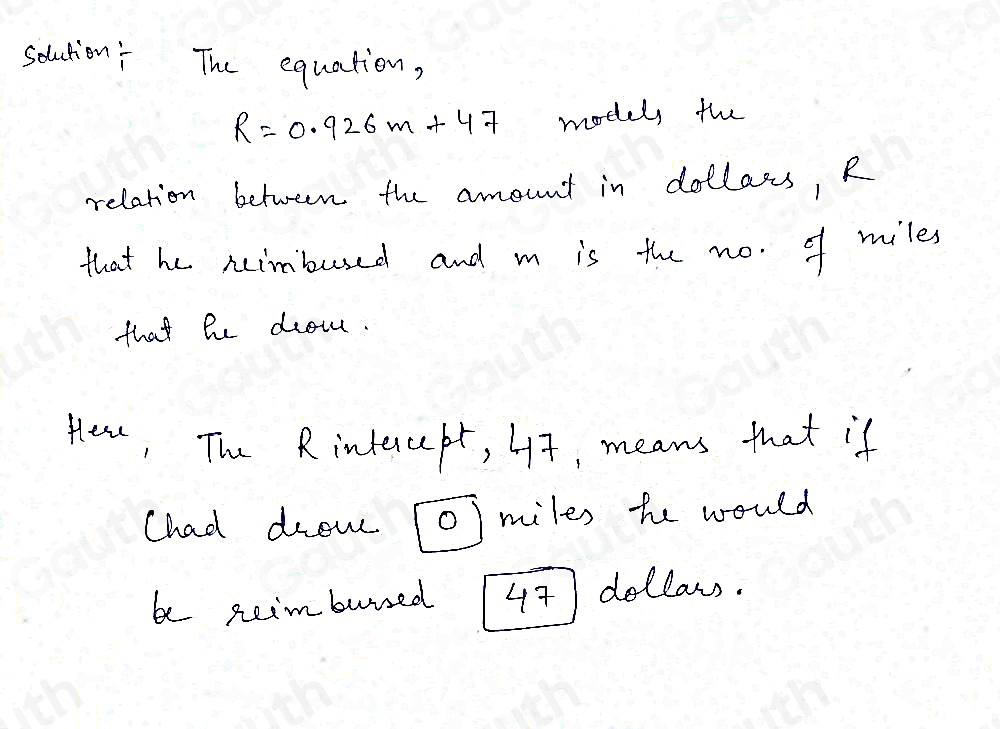 Solution:- The equation,
R = 0.926 m + 47 models the
relation between the amount in dollars, R
that he reimbused and m is the no. of miles
that he drove.
Here, The R intercept, 47, means that if
Chad drove 0 miles he would
be reimbursed 47 dollars.